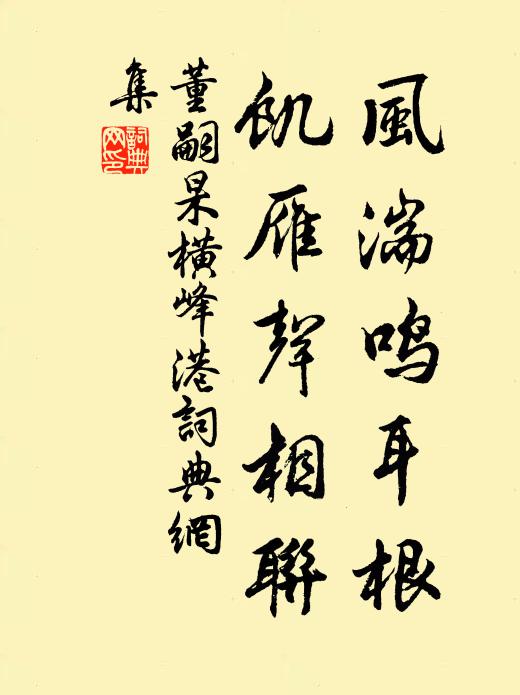 風湍鳴耳根
飢雁聲相聯
董嗣杲橫峰港詞典網
集
詞典網印